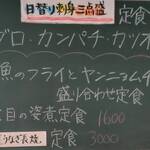 日替り刺身三点盛 定食
グロ・カンパチ・カツオ
魚のフライとヤンニョムチ
盛り合わせ定食
目の姿煮定食 1600
うなぎ長焼 定食 3000